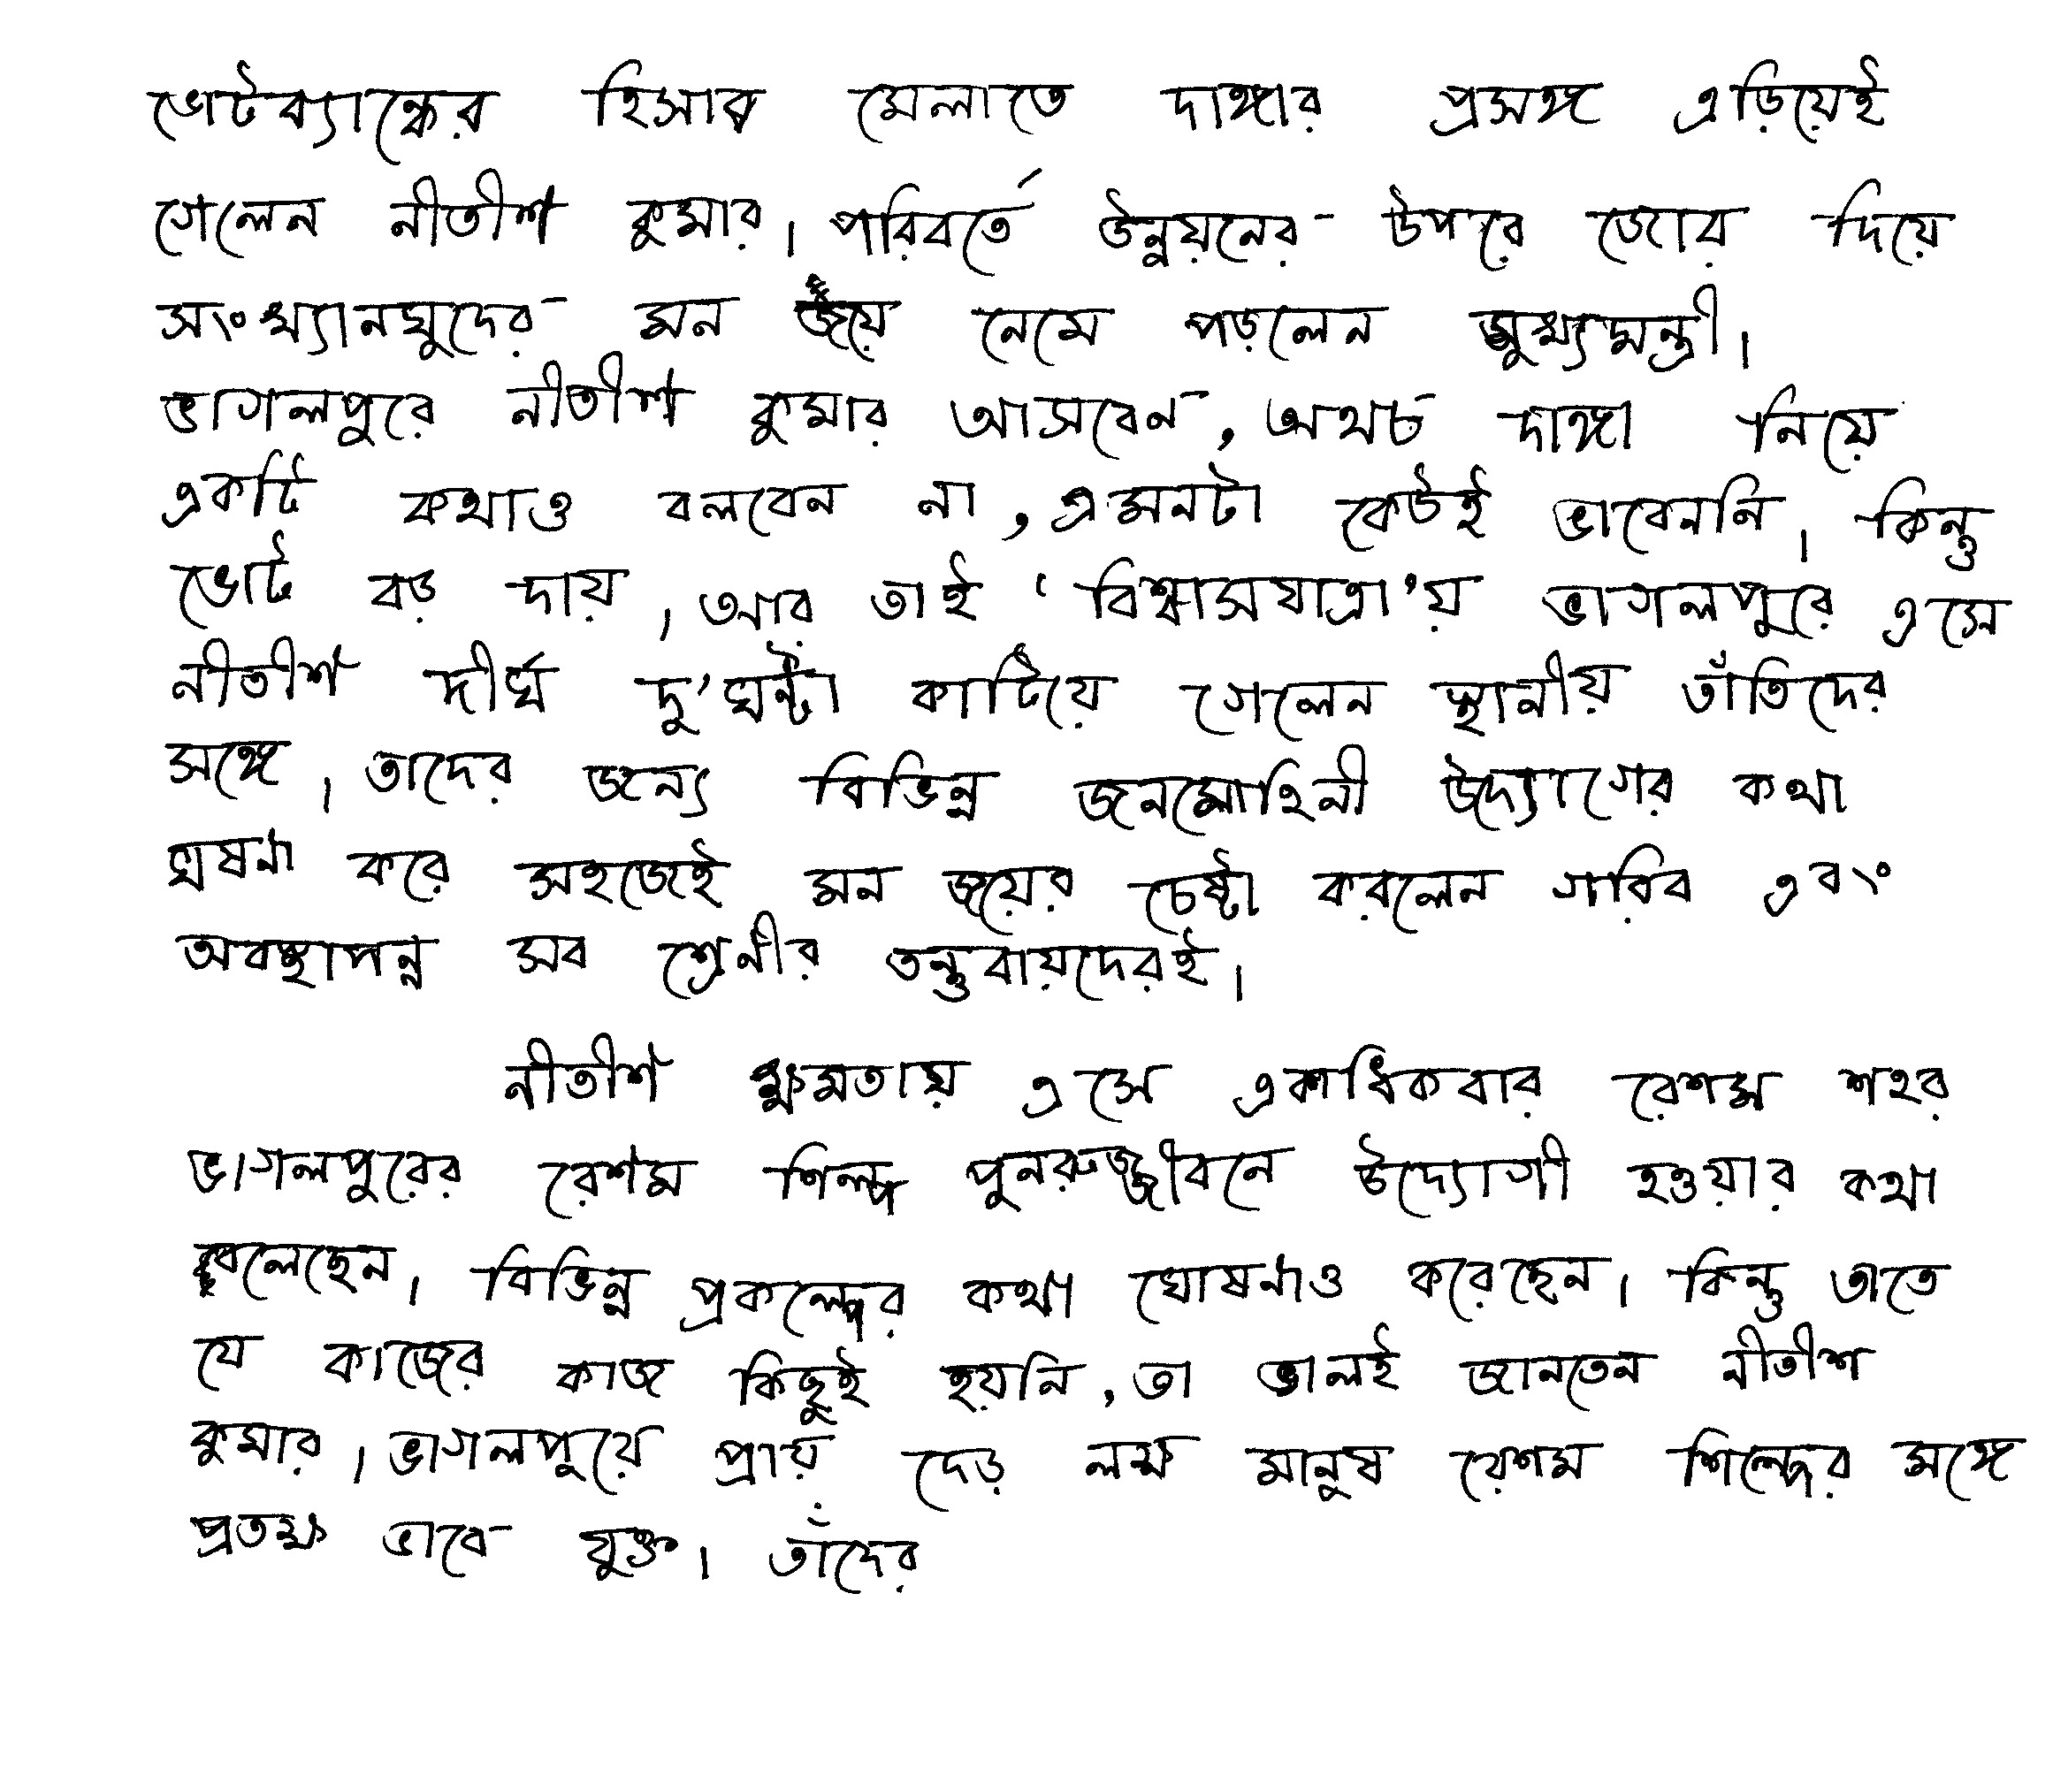 ভোটব্যাঙ্কের হিসাব মেলাতে দাঙ্গার প্রসঙ্গ এড়িয়েই
গেলেন নীতীশ কুমার। পরিবর্তে উন্নয়নের উপরে জোর দিয়ে
সংখ্যালঘুদের মন জয়ে নেমে পড়লেন মুখ্যমন্ত্রী।
ভাগলপুরে নীতীশ কুমার আসবেন, অথচ দাঙ্গা নিয়ে
একটি কথাও বলবেন না, এমনটা কেউই ভাবেননি। কিন্তু
ভোট বড় দায়। আর তাই ‘বিশ্বাসযাত্রা’য় ভাগলপুরে এসে
নীতীশ দীর্ঘ দু’ঘন্টা কাটিয়ে গেলেন স্থানীয় তাঁতিদের
সঙ্গে। তাদের জন্য বিভিন্ন জনমোহিনী উদ্যোগের কথা
ঘষনা করে সহজেই মন জয়ের চেষ্টা করলেন গরিব এবং
অবস্থাপন্ন সব শ্রেণীর তন্তুবায়দেরই।
নীতীশ ক্ষমতায় এসে একাধিকবার রেশম শহর
ভাগলপুরের রেশম শিল্প পুনরুজ্জীবনে উদ্যোগী হওয়ার কথা
বলেছেন। বিভিন্ন প্রকল্পের কথা ঘোষনাও করেছেন। কিন্তু তাতে
যে কাজের কাজ কিছুই হয়নি, তা ভালই জানতেন নীতীশ
কুমার। ভাগলপুরে প্রায় দেড় লক্ষ মানুষ রেশম শিল্পের সঙ্গে
প্রতক্ষ ভাবে যুক্ত। তাঁদের